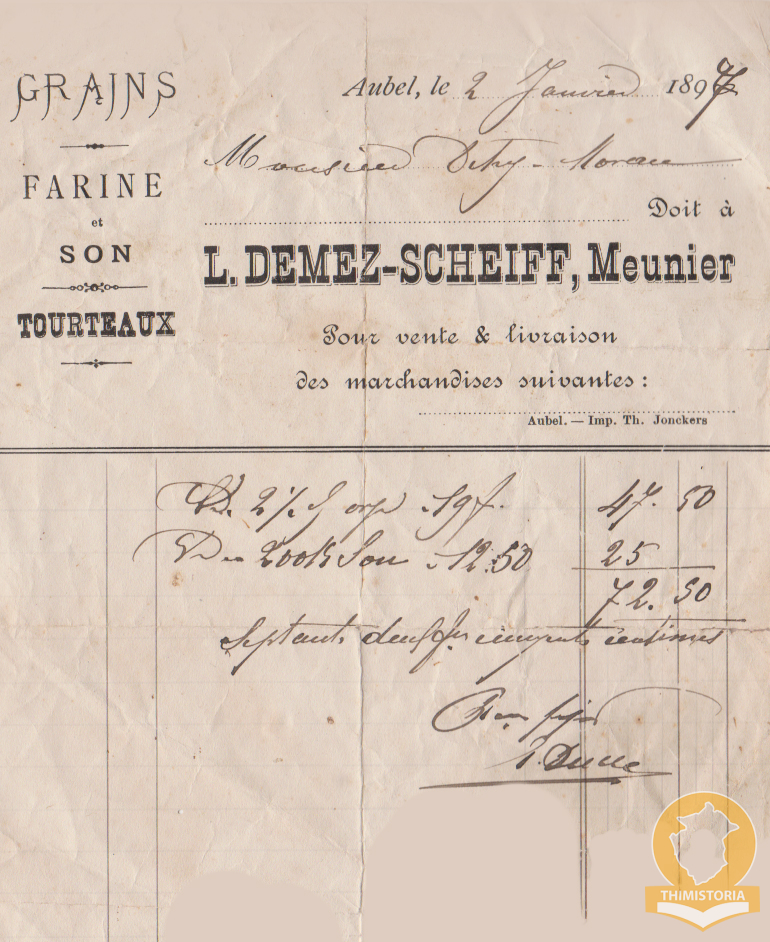 GRAINS
FARINE
et
SON
TOURTEAUX
Aubel, le 2 Janvier 1897
Monsieur
Doit à
L. DEMEZ-SCHEIFF, Meunier
Pour vente & livraison
des marchandises suivantes :
Aubel. — Imp. Th. Jonckers
47. 50
200 K Son 12.50 25
72. 50
Septante deux cinquante centimes
THIMISTORIA